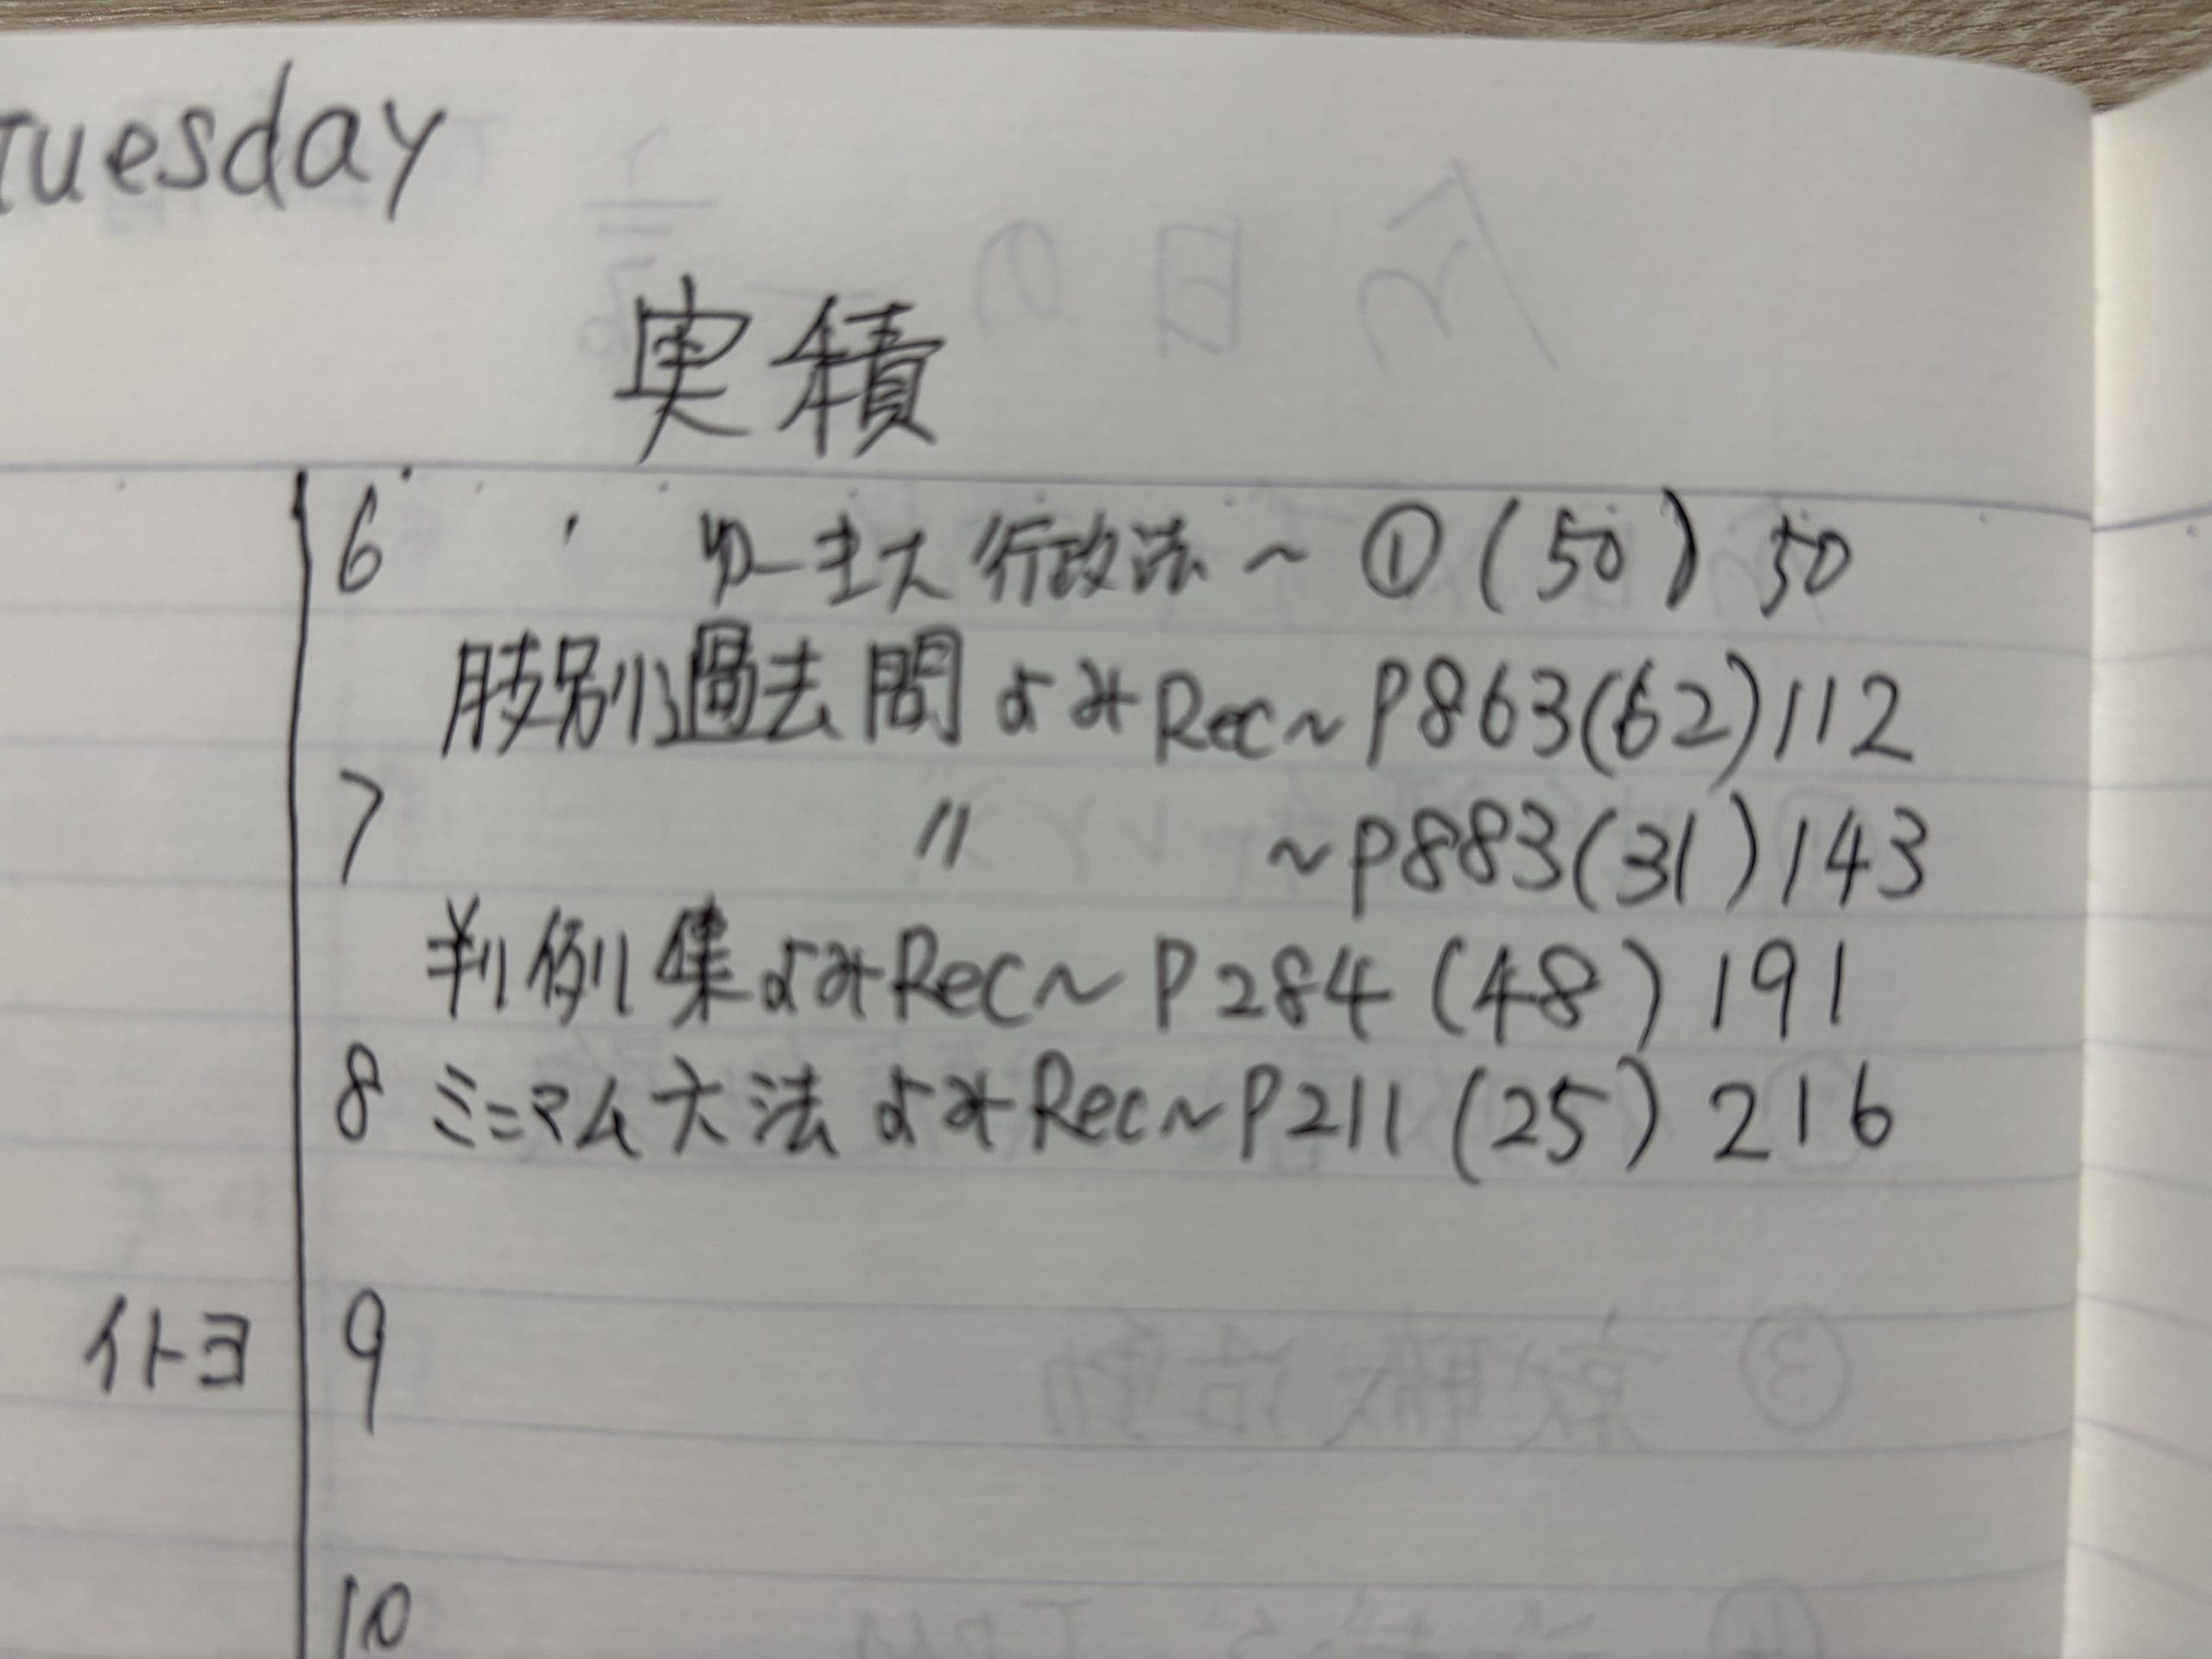 Tuesday
実積
6 ゆーき大 行政法 ~ ① (50) 50
肢別過去問 よみRec~P863(62)112
7 〃 ~P883(31)143
判例集よみRec~ P284 (48) 191
8 ミニマム六法 よみRec~P211 (25) 216
イトヨ 9
10